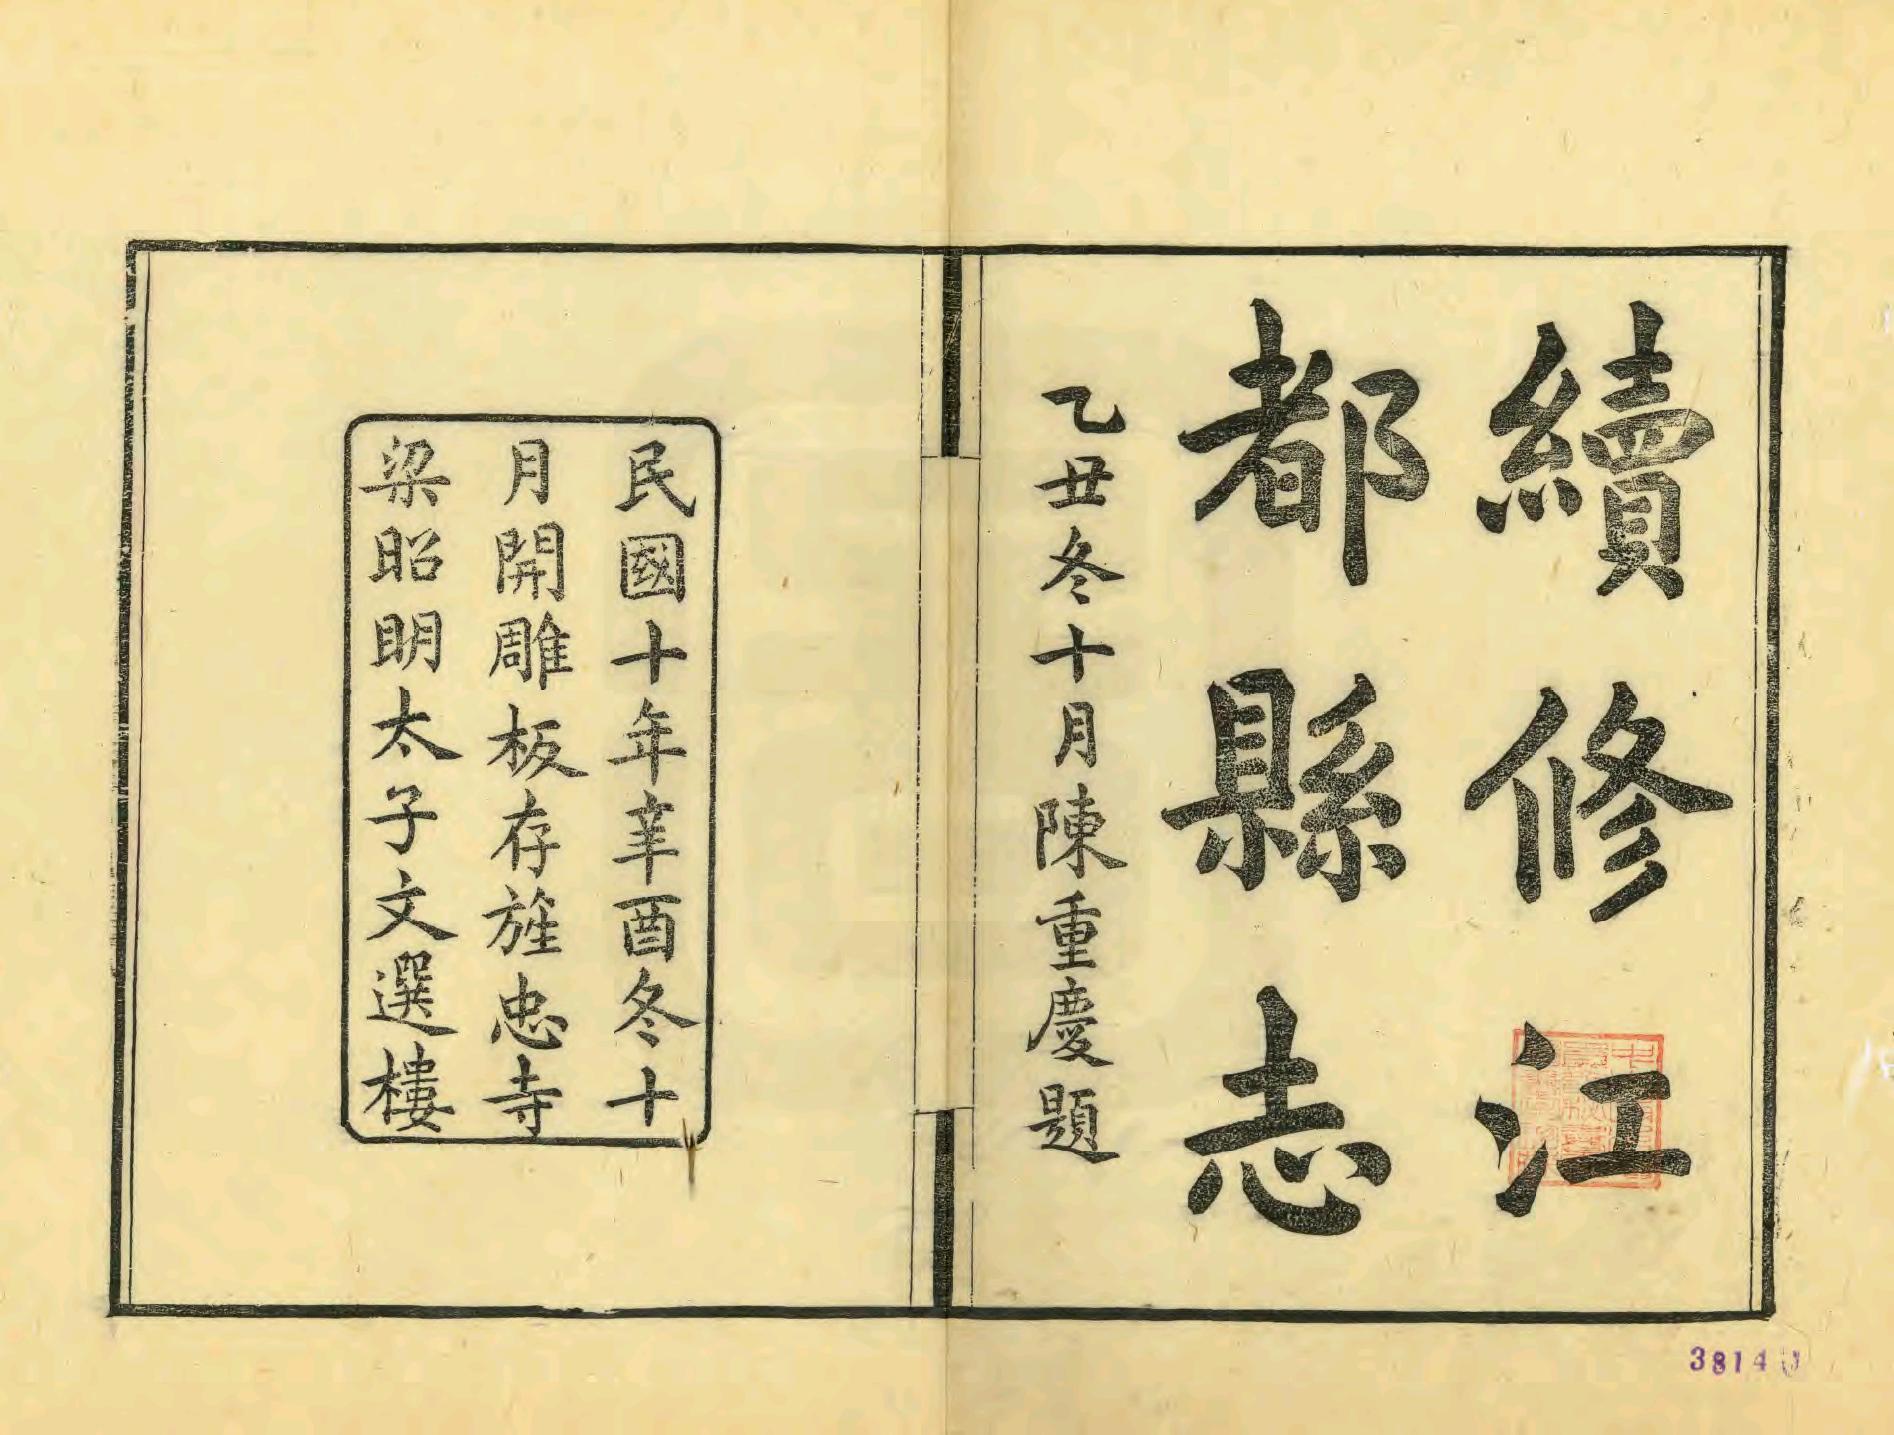 續修江
都縣志
乙丑冬十月陳重慶題
民國十年辛酉冬十
月開雕板存旌忠寺
梁昭明太子文選樓
3814